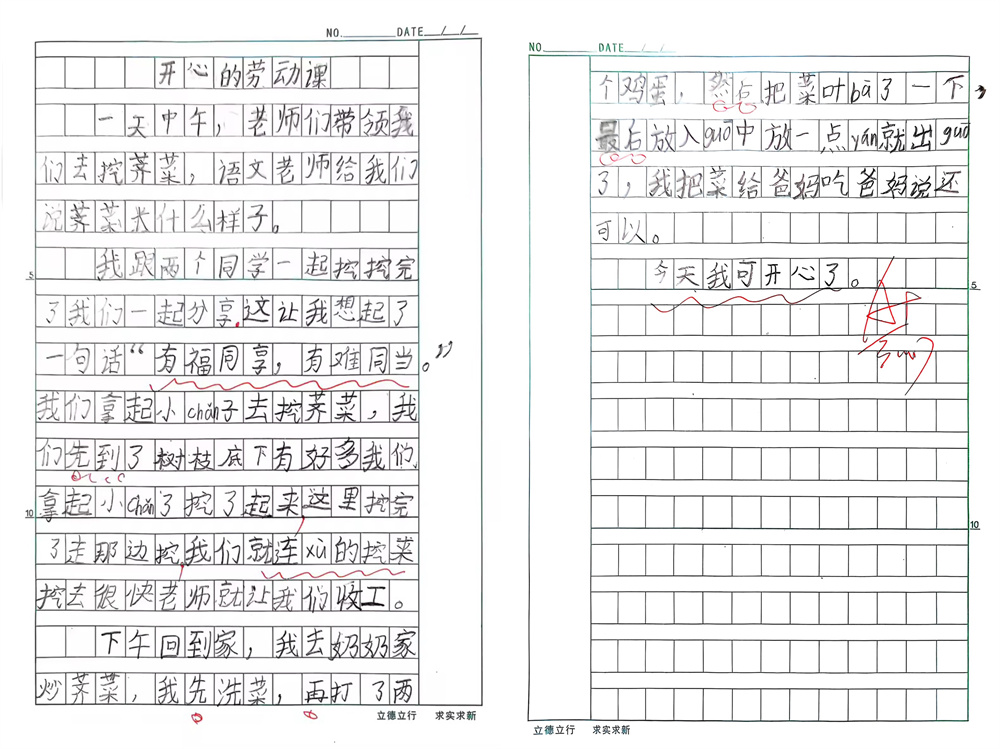 NO. DATE / /
开心的劳动课
一天中午，老师们带领我
们去挖荠菜，语文老师给我们
说荠菜米什么样子。
我跟两个同学一起挖挖完
5
了我们一起分享.这让我想起了
一句话“有福同享，有难同当。”
我们拿起小chǎn子去挖荠菜，我
们先到了树枝底下有好多我们,
拿起小chǎn了挖了起来这里挖完
10
了走那边挖,我们就连xù的挖菜
挖去很快老师就让我们收工。
下午回到家，我去奶奶家
炒荠菜，我先洗菜，再打了两
立德立行 求实求新
NO DATE / /
个鸡蛋，然后把菜叶bā了一下，
最后放入guō中放一点yán就出guō
了，我把菜给爸妈吃爸妈说还
可以。
今天我可开心了。
5
A+
10
立德立行 求实求新